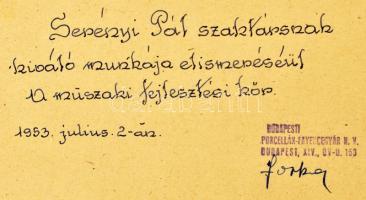 Serényi Pál szaktársnak
kiváló munkája elismeréséül
A műszaki fejlesztési kör.
1953. július. 2-án.
BUDAPESTI
PORCELLÁN-FAYENCEGYÁR N. V.
BUDAPEST, XIV., ÖV-U. 153